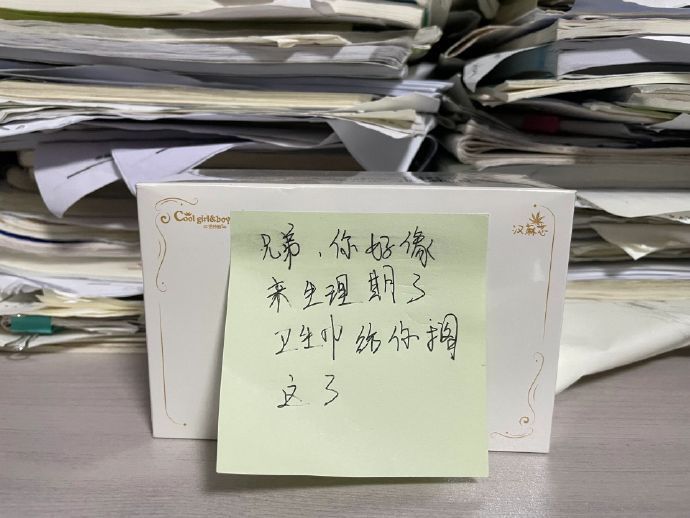 Cool girl&boy
汉麻芯
兄弟、你好像
来生理期了
卫生巾给你搁
这了